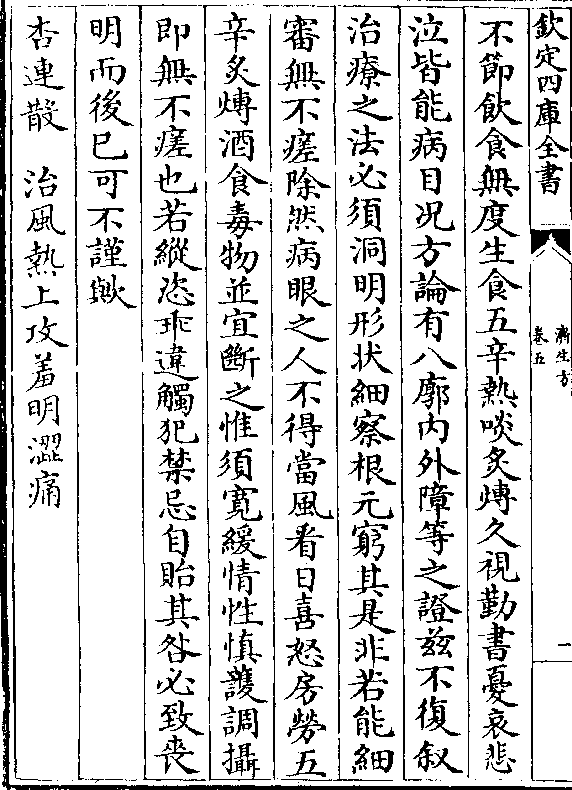 欽定四庫全書
濟生方
卷五
一
不節飲食無度生食五辛熱啖炙煿久視勤書憂哀悲
泣皆能病目况方論有八廓内外障等之證兹不復叙
治療之法必須洞明形状細察根元窮其是非若能細
審無不瘥除然病眼之人不得當風看日喜怒房勞五
辛炙煿酒食毒物並宜斷之惟須寛緩情性慎護調攝
即無不瘥也若縱恣乖違觸犯禁忌自貽其咎必致喪
明而後已可不謹歟
杏連散　治風熱上攻羞明澀痛